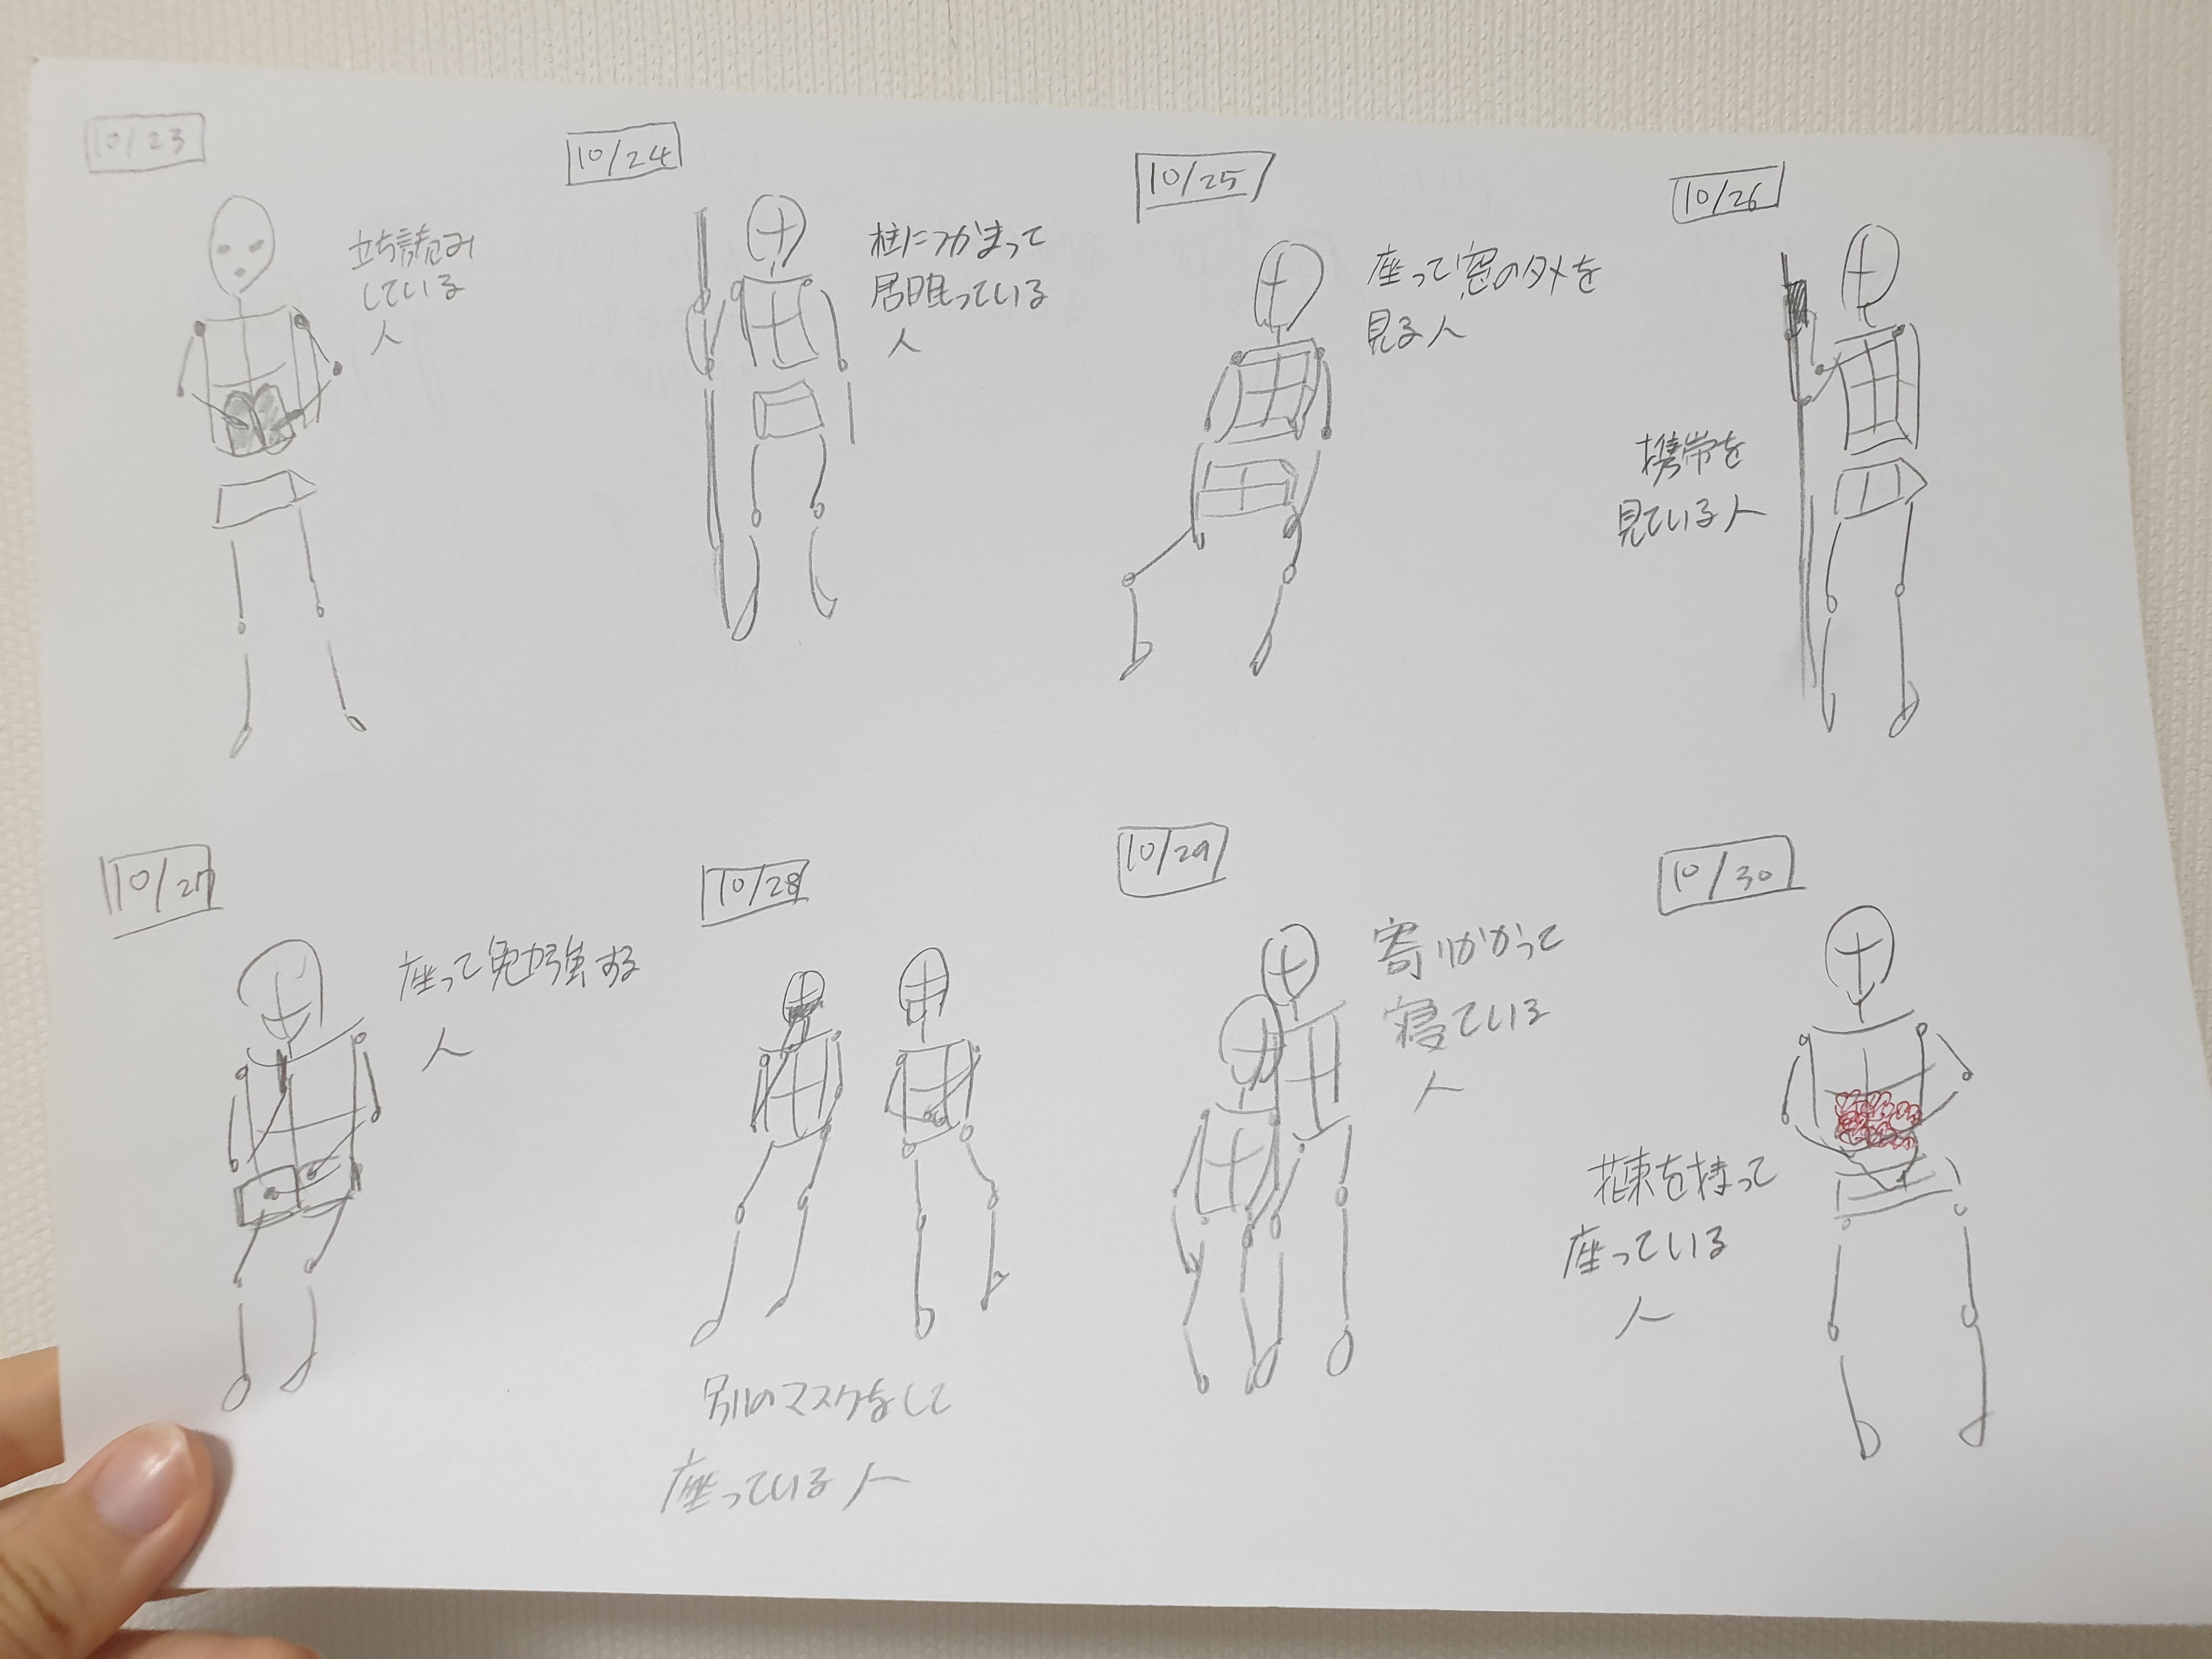 10/23
立ち読み
している
人
10/24
柱につかまって
居眠っている
人
10/25
座って窓の外を
見る人
10/26
携帯を
見ている人
10/27
座って勉強する
人
10/28
別のマスクをして
座っている人
10/29
寄りかかって
寝ている
人
10/30
花束を持って
座っている
人